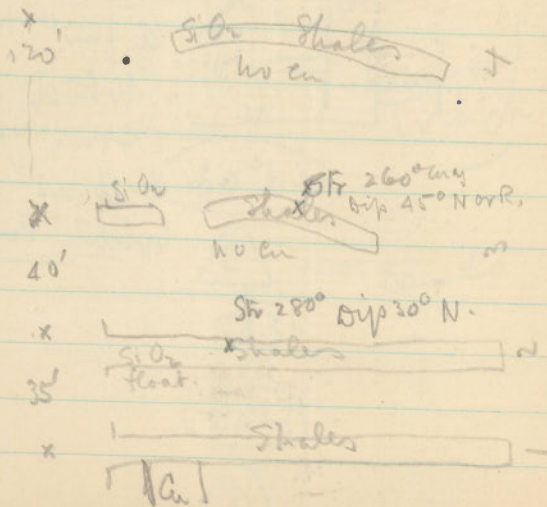 x
120'
SiO2 Shales
no cu
x
SiO2
Shales
Str 260°
Dip 45° N or R.
no cu
40'
Str 280° Dip 30° N.
x
SiO2 x Shales
float.
35'
x
Shales
Cu